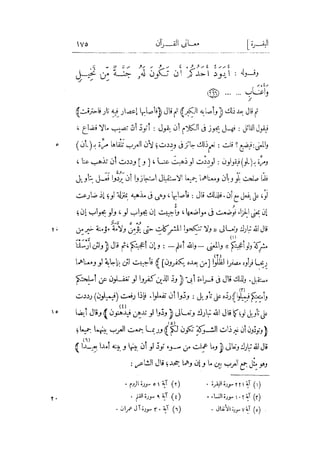 البقرة ] معاني القرآن ١٧٥
وقوله : أَيَوَدُّ أَحَدُكُمْ أَن تَكُونَ لَهُ جَنَّةٌ مِّن نَّخِيلٍ
وَأَعْنَابٍ ... ... (٢٦٦)
ثم قال بعد ذلك ﴿وأصابه الكبر﴾ ثم قال ﴿فأصابها إعصار فيه نار فاحترقت﴾
فيقول القائل : فهل يجوز فى الكلام أن يقول : أتودّ أن تصيب مالا فضاع ،
٥ والمعنى : فيضيع ؟ قلت : نعم ذلك جائز فى وددت؛ لأن العرب تلقاها مرّة بـ (ـأن)
ومرّة بـ (ـلو) فيقولون : لوددت لو ذهبت عنا ، [و] وددت أن تذهب عنا ،
فلمّا صلحت بَلَوْ وبأن ومعناهما جميعا الاستقبال استجازوا أن يردّوا فعل بتأويل
لو، على يفعل مع أن. فلذلك قال : فأصابها، وهى فى مذهبه بمنزلة لو؛ إذ ضارعت
إن بمعنى الجزاء فوضعت فى مواضعها، وأجيبت إن بجواب لو، ولو بجواب إن؛
١٠ قال الله تبارك وتعالى «ولا تنكحوا المشركات حتى يؤمنّ ولأمة مؤمنة خير من
مشركة ولو أعجبتكم» والمعنى — والله أعلم — : وإن أعجبتكم؛ ثم قال ﴿ولئن أرسلنا
ريحا فرأوه مصفرّا لظلّوا [من بعده يكفرون]﴾ فأجيبت لئن بإجابة لو ومعناهما
مستقبل. ولذلك قال فى قراءة أبىّ ﴿ودّ الذين كفروا لو تغفلون عن أسلحتكم
وأمتعتكم فيميلوا﴾ ردّه على تأويل : ودّوا أن تفعلوا. فإذا رفعت (فيميلون) رددت
١٥ على تأويل لو؛ كما قال الله تبارك وتعالى ﴿ودّوا لو تدهن فيدهنون﴾ وقال أيضا
﴿وتودّون أن غير ذات الشوكة تكون لكم﴾ وربما جمعت العرب بينهما جميعا؛
قال الله تبارك وتعالى ﴿وما عملت من سوء تودّ لو أن بينها وبينه أمدا بعيدا﴾
وهو مثل جمع العرب بين ما وإن وهما جحد؛ قال الشاعر :
(١) آية ٢٢١ سورة البقرة . (٢) آية ٥١ سورة الروم .
٢٠ (٣) آية ١٠٢ سورة النساء . (٤) آية ٩ سورة القلم .
(٥) آية ٧ سورة الأنفال . (٦) آية ٣٠ سورة آل عمران .